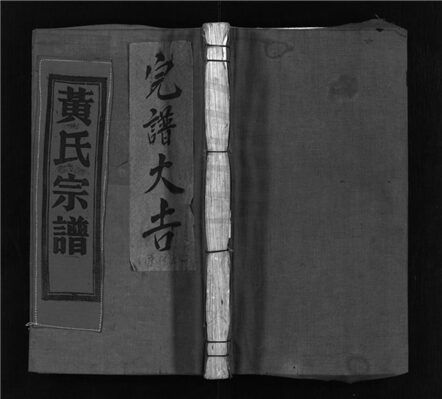 完譜大吉
黃氏宗譜